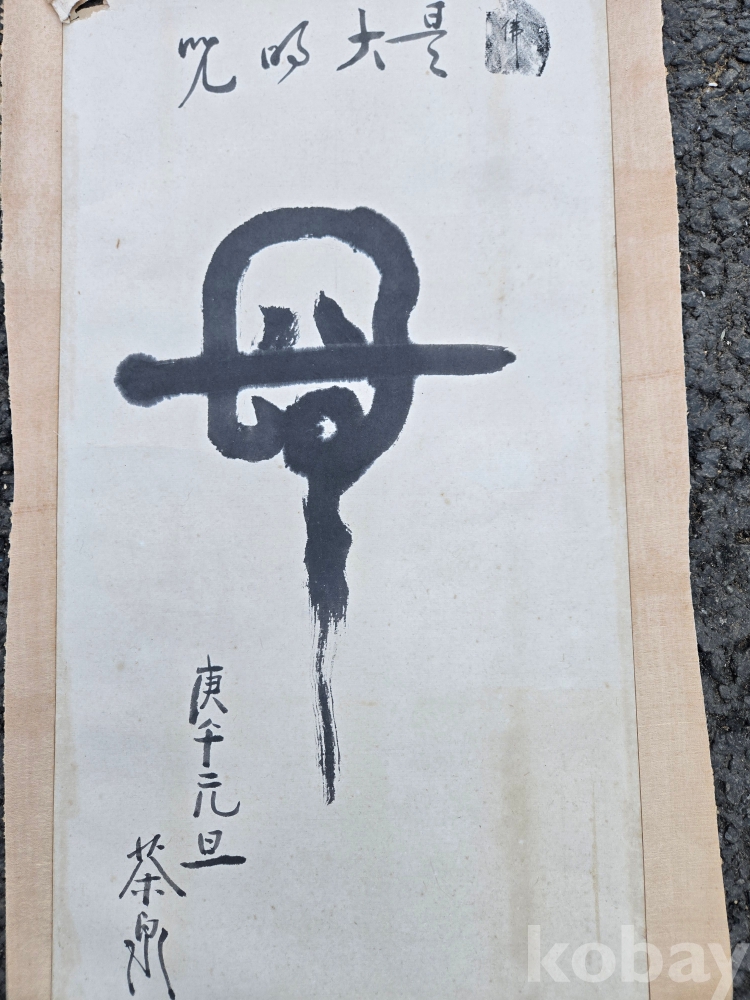 佛
是大明呪
庚午元旦
茶泉
kobay